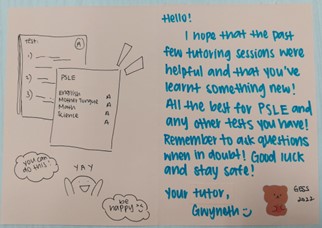 TEST:
A
1)
2)
3)
PSLE
English A
Mother Tongue A
Math A
Science A
you can
do this!
YAY
be
happy
Hello!
I hope that the past
few tutoring sessions were
helpful and that you've
learnt something new!
All the best for PSLE and
any other tests you have!
Remember to ask questions
when in doubt! Good luck
and stay safe!
Your tutor,
Gwyneth
2022